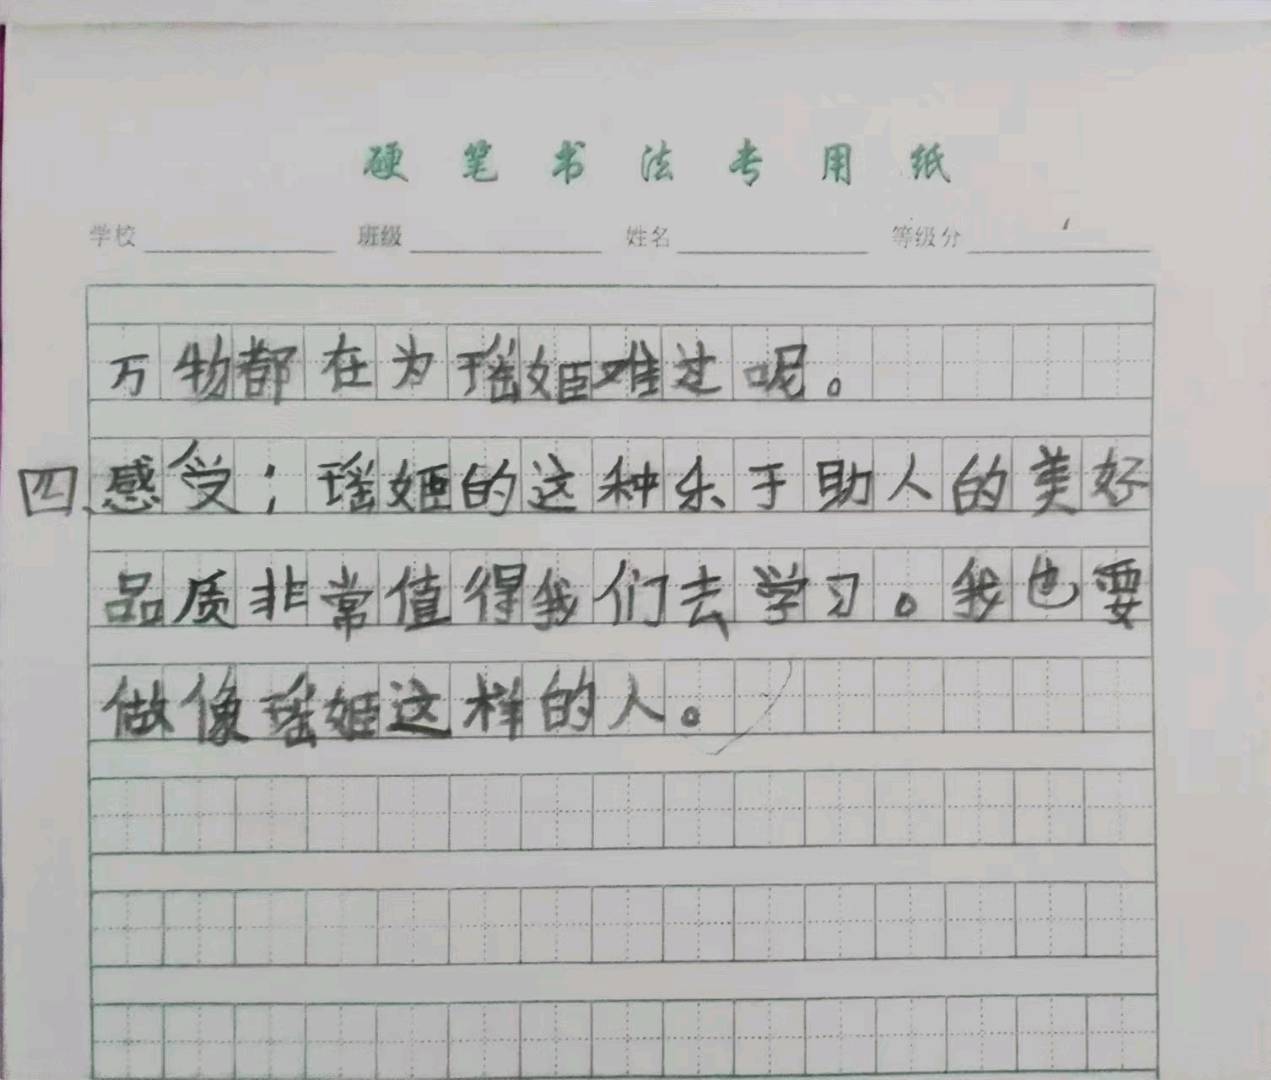 硬笔书法专用纸
学校 班级 姓名 等级分
万物都在为瑶姬难过呢。
四、感受；瑶姬的这种乐于助人的美好
品质非常值得我们去学习。我也要
做像瑶姬这样的人。